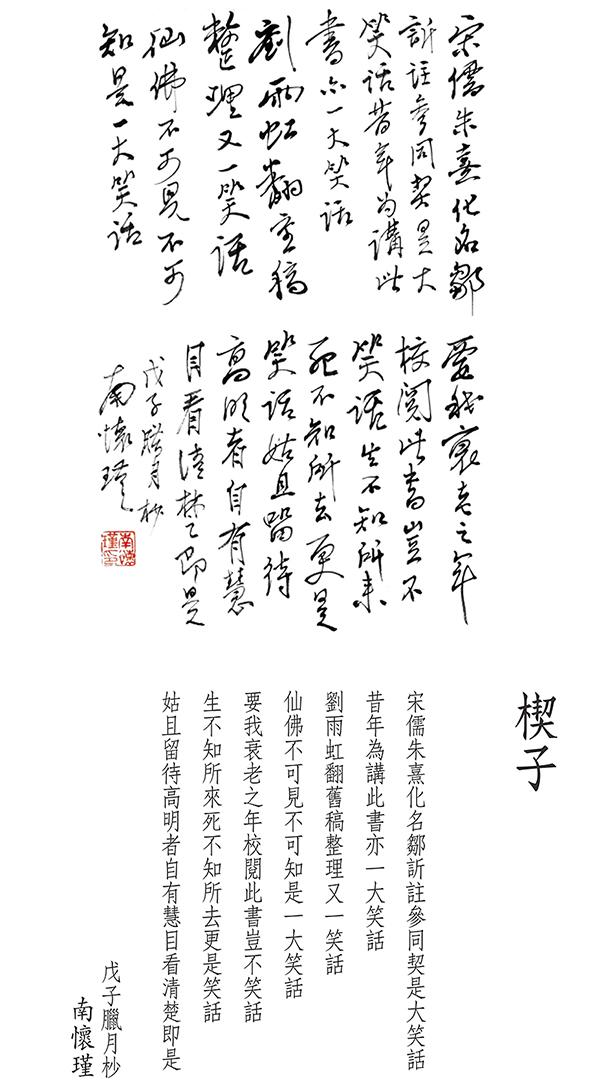 宋儒朱熹化名鄒
訢註參同契是大
笑话昔年为講此
書亦一大笑话
劉雨虹翻舊稿
整理又一笑话
仙佛不可見不可
知是一大笑话
要我衰老之年
校閱此書豈不
笑话生不知所来
死不知所去更是
笑话姑且留待
高明者自有慧
目看清楚即是
戊子臘月杪
南懷瑾
南懷
瑾印
楔子
宋儒朱熹化名鄒訢註參同契是大笑話
昔年為講此書亦一大笑話
劉雨虹翻舊稿整理又一笑話
仙佛不可見不可知是一大笑話
要我衰老之年校閱此書豈不笑話
生不知所來死不知所去更是笑話
姑且留待高明者自有慧目看清楚即是
戊子臘月杪
南懷瑾